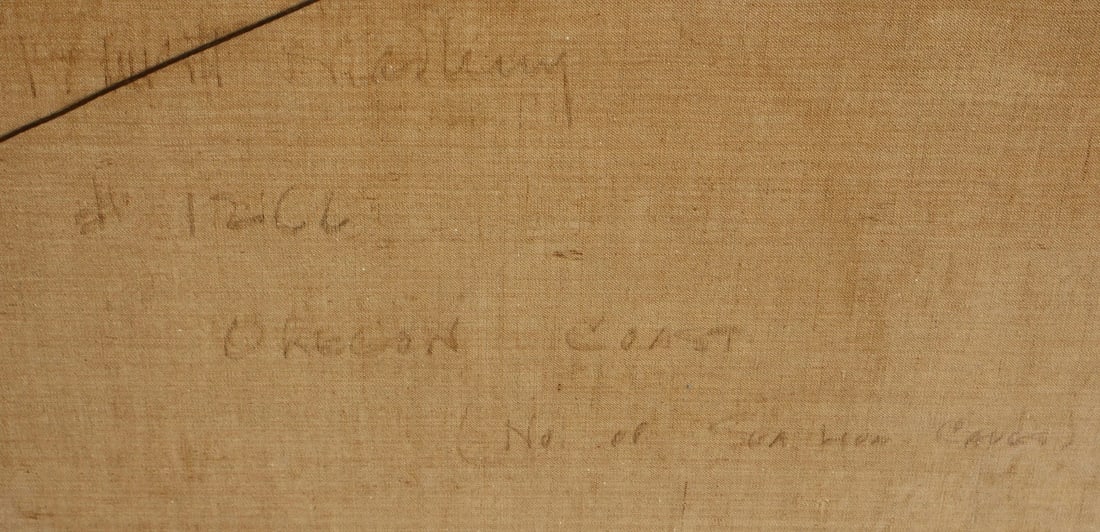 # 1266
OREGON COAST
(No. of SEA LION CAVES)